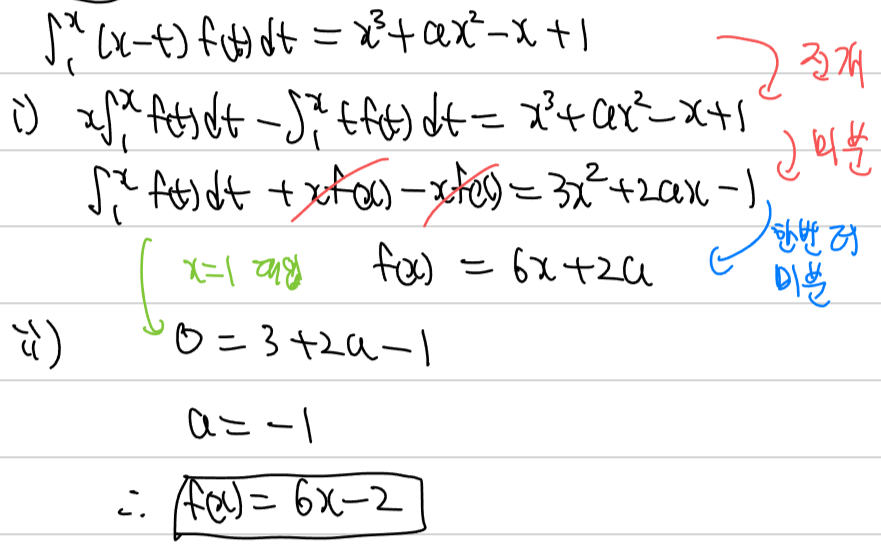 ∫₁ˣ (x-t) f(t) dt = x³ + ax² - x + 1
전개
i) x∫₁ˣ f(t) dt - ∫₁ˣ t f(t) dt = x³ + ax² - x + 1
미분
∫₁ˣ f(t) dt + xf(x) - xf(x) = 3x² + 2ax - 1
한번 더
미분
x=1 대입 f(x) = 6x + 2a
ii) 0 = 3 + 2a - 1
a = -1
∴ f(x) = 6x - 2